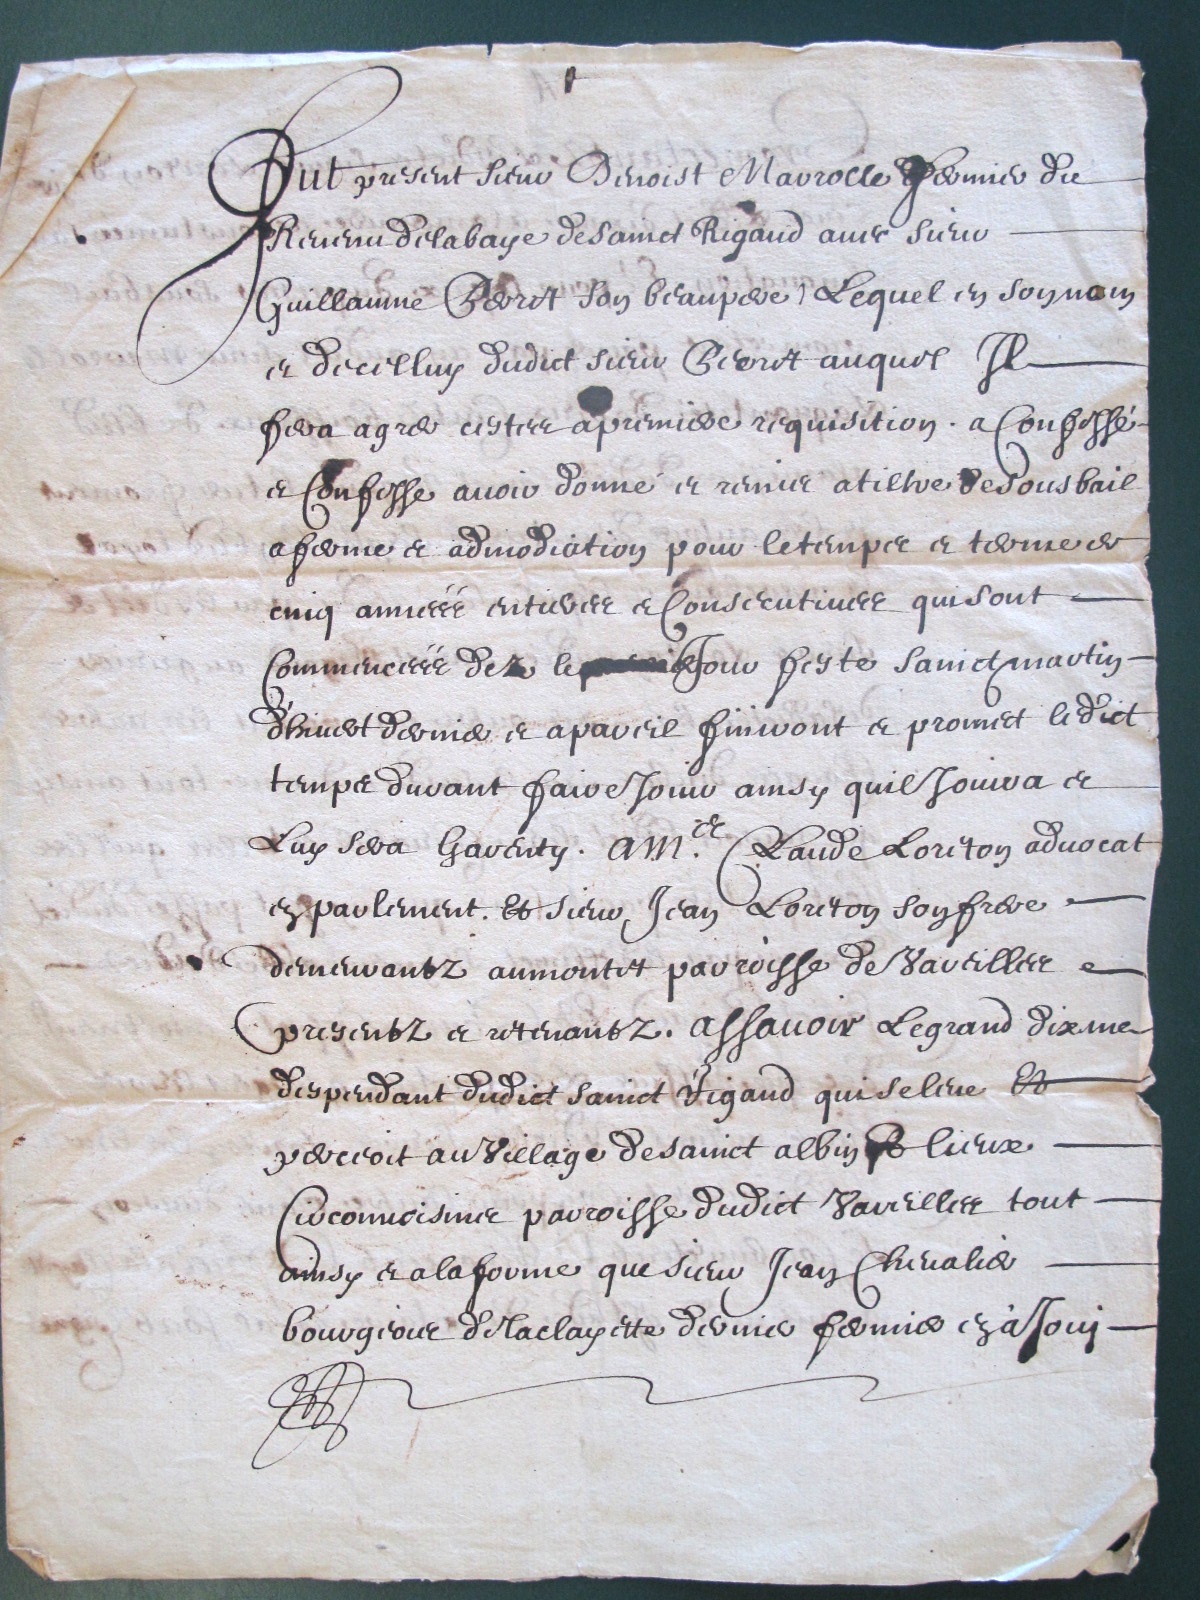 Fut present sieur Benoist Marrolle fermier du
Revenu delabaye desainct Rigaud avec sieur
Guillaume Perrot son beaupere, Lequel en son nom
et decelluy dudict sieur Perrot auquel Il
fera agreer cestes a premiere requisition. a Confessé
et Confesse avoir donné et remis atiltre desousbail
aferme et admodiation pour letemps et terme de
cinq années entieres et Consecutives quisont
Commencées dez le Jour feste sainct martin
d'hivert dernier et apareil finiront et promet ledict
temps durant faire Jouir ainsy quil Jouira et
Luy sera Garenty. a M.re Claude Loreton advocat
en parlement. Et sieur Jean Loreton son frere
demeurantz aumontet parroisse de Vareilles
presentz et retenantz. assavoir Legrand dixme
despendant dudict sainct Rigaud qui seleve Et
percoit au Village desainct albin Et lieux
Circonvoisines parroisse dudict Vareilles tout
ainsy et alaforme que sieur Jean Chevalier
bourgeois de laclayette dernier fermier en à Joui